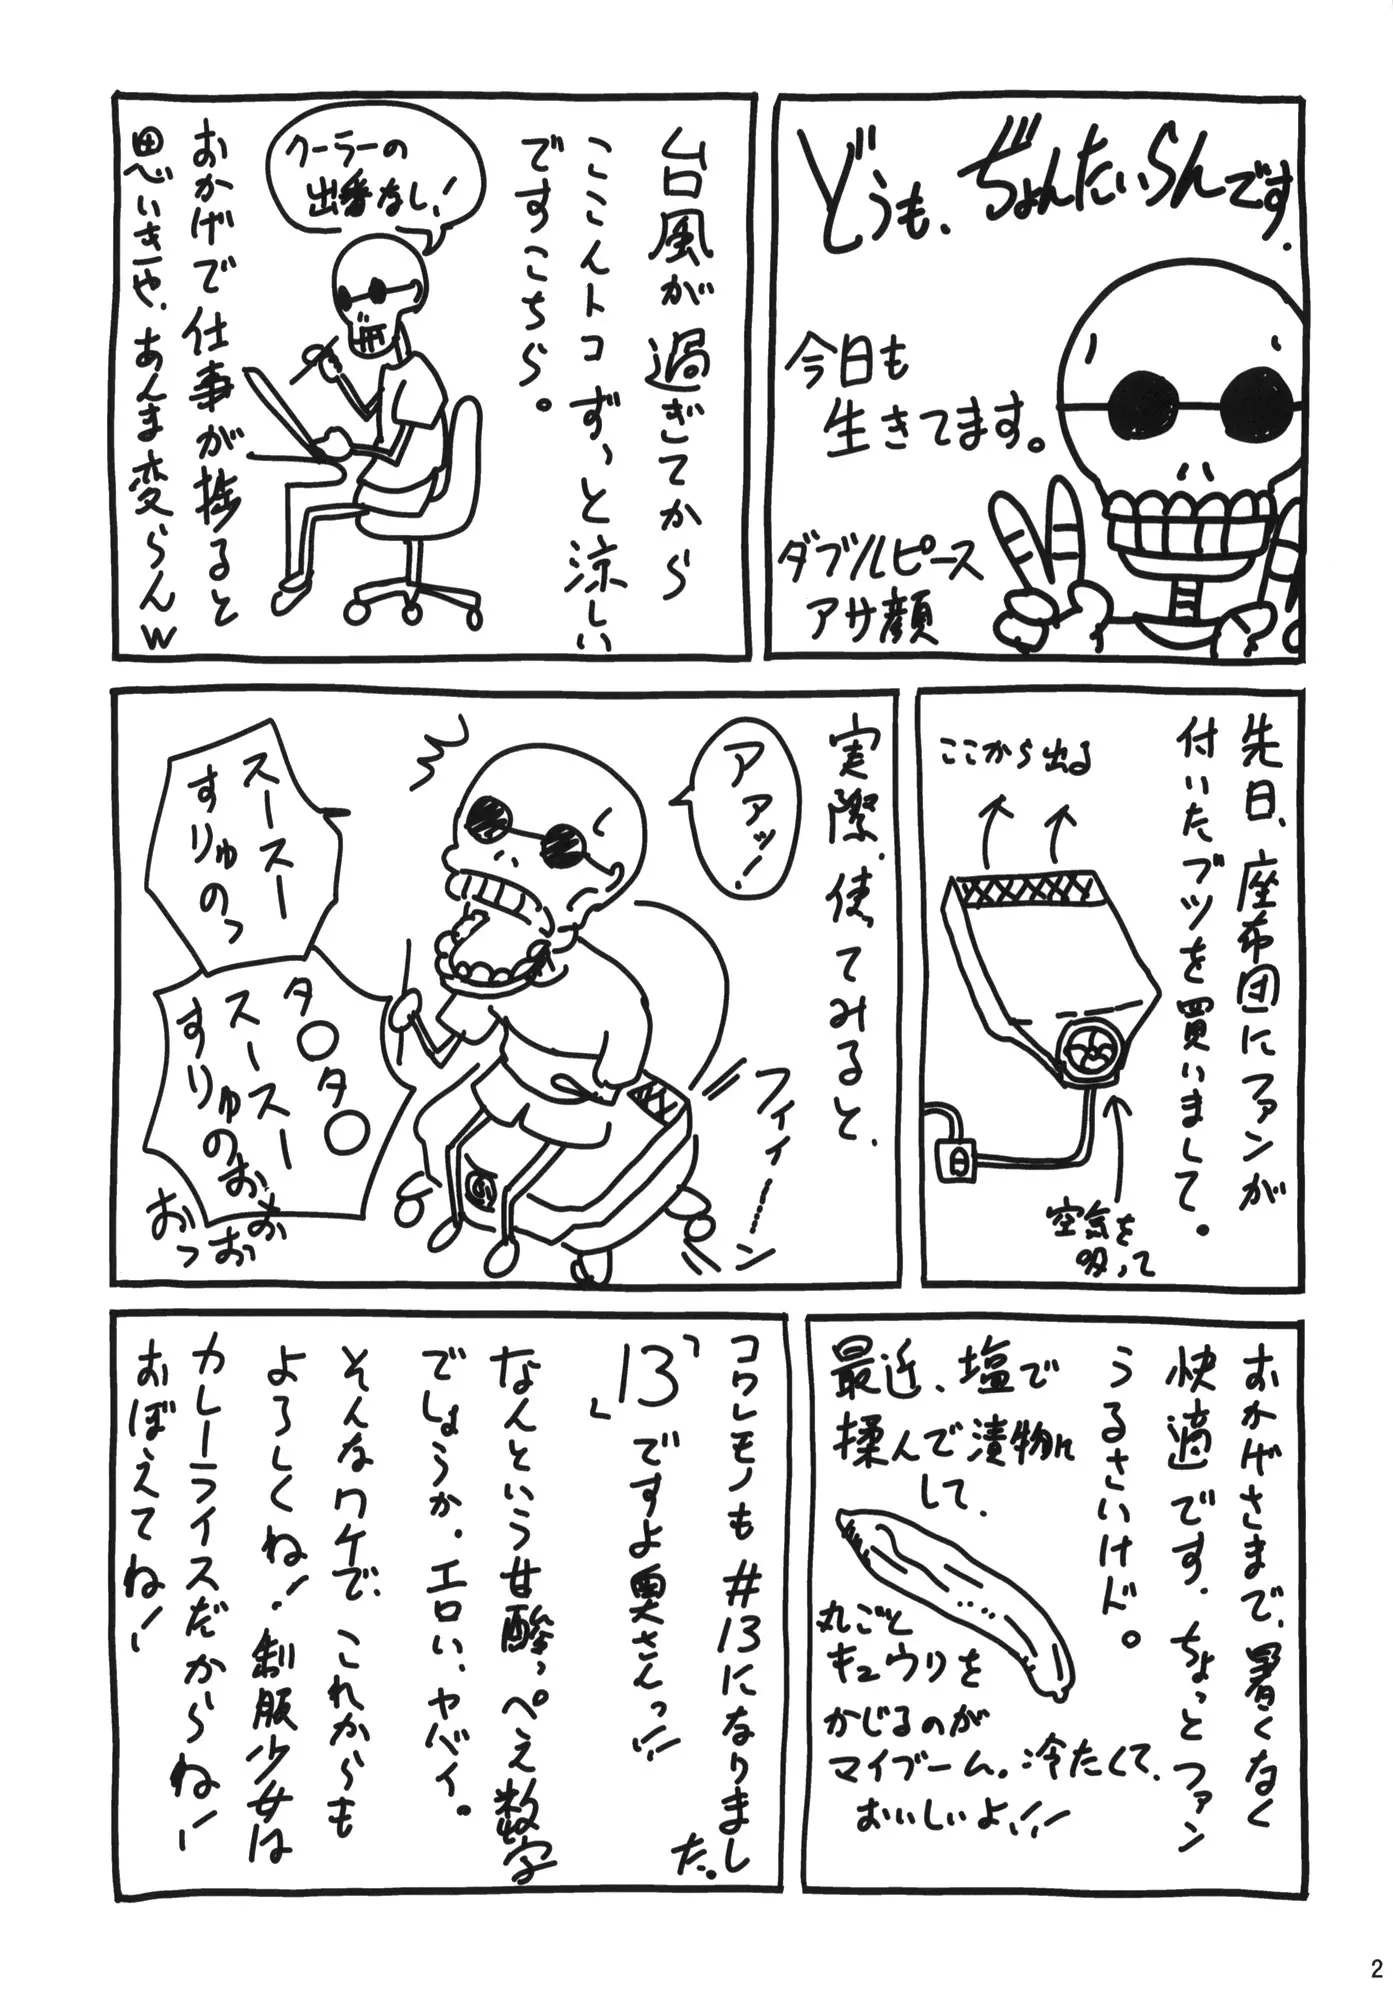 どうも、ぢょんたいらんです。
今日も
生きてます。
ダブルピース
アサ顔
台風が過ぎてから
ここんトコずぅっと涼しい
ですこちら。
クーラーの
出番なし!
おかげで仕事が捗ると
思いきや、あんま変らんw
先日、座布団にファンが
付いたブツを買いまして。
ここから出る
空気を
吸って
実際、使ってみると、
アアッ!
フィィーー……ン
スースー
すりゅのっ
タ○タ○
スースー
すりゅのおお
おっおお
おかげさまで、暑くなく
快適です。ちょっとファン
うるさいけど。
最近、塩で
揉んで漬物に
して、
丸ごと
キュウリを
かじるのが
マイブーム。冷たくて、
おいしいよ!!
コワレモノも#13になりました。
「13」ですよ奥さんっ!!
なんという甘酸っぺえ数字
でしょうか。エロい、ヤバイ。
そんなワケで、これからも
よろしくね! 制服少女は
カレーライスだからね!
おぼえてね!
2